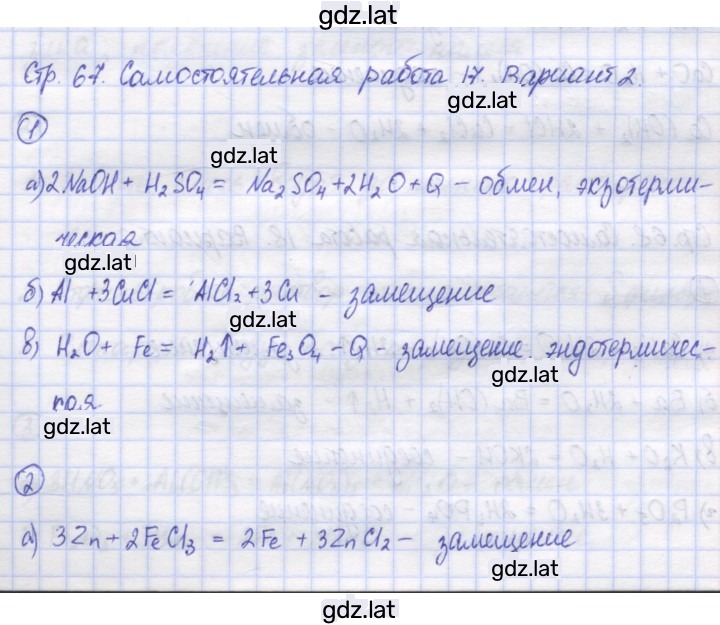 gdz.lat
Стр. 67. Самостоятельная работа 17. Вариант 2.
gdz.lat
1
gdz.lat
а) 2NaOH + H₂SO₄ = Na₂SO₄ + 2H₂O + Q – обмен, экзотерми-
ческая
gdz.lat
б) Al + 3CuCl = AlCl₂ + 3Cu – замещение
gdz.lat
в) H₂O + Fe = H₂↑ + Fe₃O₄ – Q – замещение. эндотермичес-
gdz.lat
кая
gdz.lat
2
а) 3Zn + 2FeCl₃ = 2Fe + 3ZnCl₂ – замещение
gdz.lat
gdz.lat